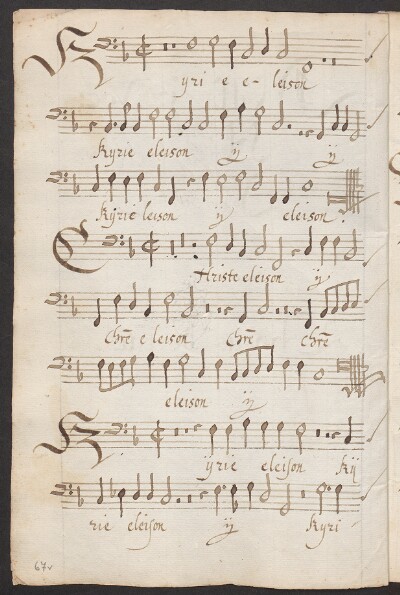 Kyri e e- leison
Kyrie eleison ij ij
Kyrie leison ij eleison.
Christe eleison ij
Chrē e leison Chrē Chrē
eleison ij
Kyrie eleison Ky
rie eleison ij Kyri
67v